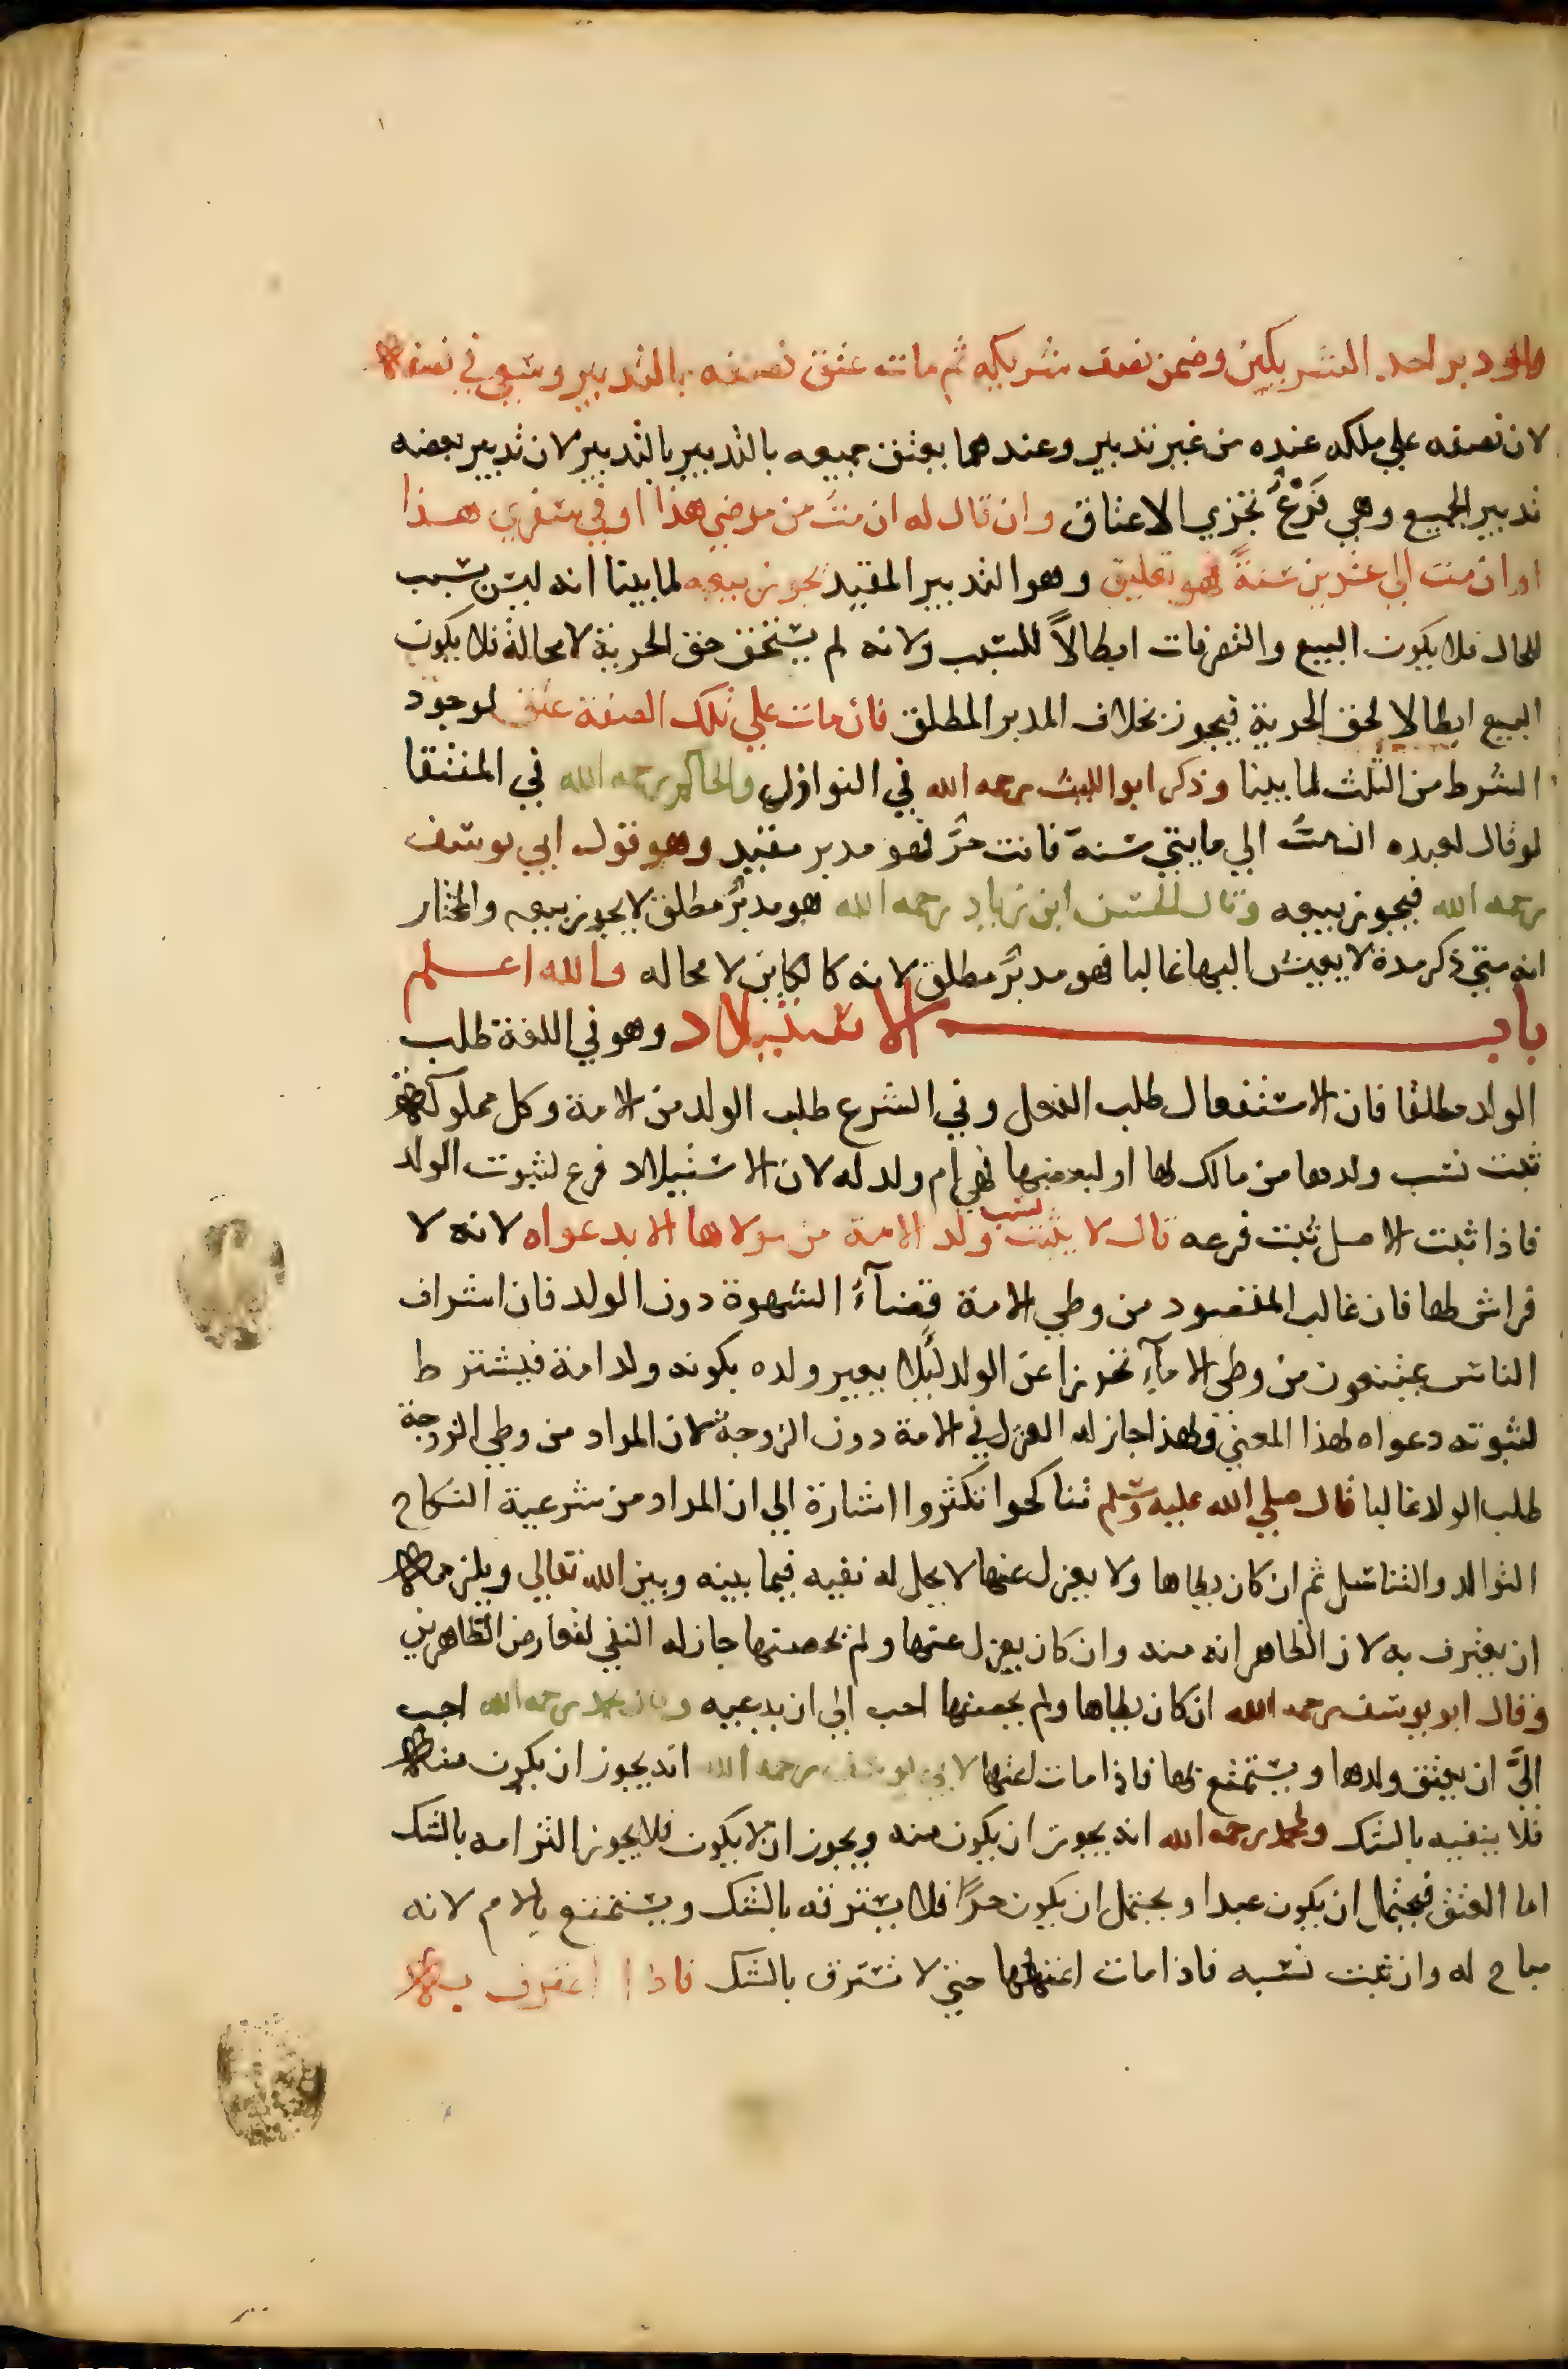 ولو دبر احد الشريكين وضمن نصف شريكه ثم مات عتق نصفه بالتدبير وسعي في نصفه
لان نصفه علي ملكه عنده من غير تدبير وعندهما يعتق جميعه بالتدبير بالتدبير لان تدبير بعضه
تدبير الجميع وهي فَرْعُ تجزي الاعتاق وان قال له ان متُّ من مرضي هذا او في سفري هذا
او ان مت الي عشرين سَنةً فهو تعليق وهو التدبير المقيد يجوز بيعه لما بينا انه ليس بسبب
للحال فلا يكون البيع والتصرفات ابطالاً للسبب ولانه لم يستحق حق الحرية لا محالة فلا يكون
البيع ابطالا لحق الحرية فيجوز بخلاف المدبر المطلق فان مات علي تلك الصفة عتق لوجود
الشرط من الثلث لما بينا وذكر ابو الليث رحمه الله في النوازل والحاكم رحمه الله في المنتقا
لو قال لعبده ان متُّ الي مايتي سنة فانت حرٌ فهو مدبر مقيد وهو قول ابي يوسف
رحمه الله فيجوز بيعه وقال الحسن ابن زياد رحمه الله هو مدبرٌ مطلق لا يجوز بيعه والمختار
انه متي ذكر مدة لا يعيش اليها غالبا فهو مدبرٌ مطلق لانه كالكاين لا محاله والله اعلم
باب الاستيلاد وهو في اللغة طلب
الولد مطلقا فان الاستفعال طلب الفعل وفي الشرع طلب الولد من الامة وكل مملوكة
ثبت نسب ولدها من مالك لها او لبعضها فهي ام ولد له لان الاستيلاد فرع لثبوت الولد
فاذا ثبت الاصل ثبت فرعه قال لا يثبت نسب ولد الامة من مولاها الا بدعواه لانه لا
فراش لها فان غالب المقصود من وطي الامة قضآءُ الشهوة دون الولد فان اشراف
الناس يمتنعون من وطي الامآءِ تحرزا عن الولد لئلا يعير ولده بكونه ولد امة فيشترط
لثبوته دعواه لهذا المعني ولهذا جاز له العزل في الامة دون الزوجة لان المراد من وطي الزوجة
طلب الولد غالبا قال صلي الله عليه وسلم تناكحوا تكثروا اشارة الي ان المراد من شرعية النكاح
التوالد والتناسل ثم ان كان يطاها ولا يعزل عنها لا يحل له نفيه فيما بينه وبين الله تعالي ويلزمه
ان يعترف به لان الظاهر انه منه وان كان يعزل عنها ولم يحصنها جاز له النفي لتعارض الظاهرين
وقال ابو يوسف رحمه الله ان كان يطاها ولم يحصنها احب الي ان يدعيه وقال محمد رحمه الله احب
اليَّ ان يعتق ولدها ويستمتع بها فاذا مات اعتقها لابي يوسف رحمه الله انه يجوز ان يكون منه
فلا ينفيه بالشك ولمحمد رحمه الله انه يجوز ان يكون منه ويجوز ان لا يكون فلا يجوز التزامه بالشك
اما العتق فيحتمل ان يكون عبدا ويحتمل ان يكون حرًا فلا يسترقه بالشك ويستمتع بالام لانه
مباح له وان ثبت نسبه فاذا مات اعتقها حتي لا تسترق بالشك فاذا اعترف به